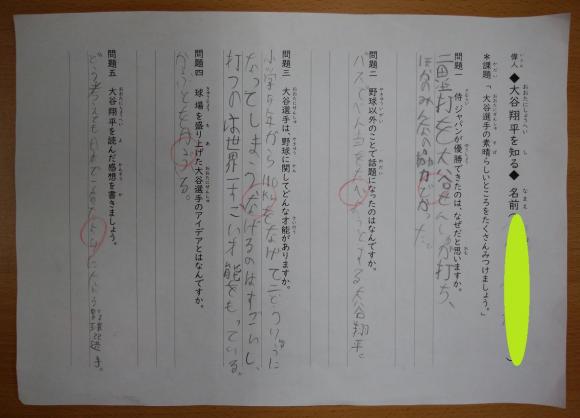 偉人 ◆大谷翔平を知る◆ 名前
*課題「大谷選手の素晴らしいところをたくさんみつけましょう。」
問題一 侍ジャパンが優勝できたのは、なぜだと思いますか。
二塁打を大谷せんしゅが打ち、
ほかのみんなの協力でかった。
問題二 野球以外のことで話題になったのはなんですか。
バスでべん当をたべようとする大谷翔平。
問題三 大谷選手は、野球に関してどんな才能がありますか。
小学5年から110kmをなげて
なってしまうなげるのはすごいし、
打つのは世界一すごい才能をもっている。
問題四 球場を盛り上げた大谷選手のアイデアとはなんですか。
かぶとをかぶる。
問題五 大谷翔平を読んだ感想を書きましょう。